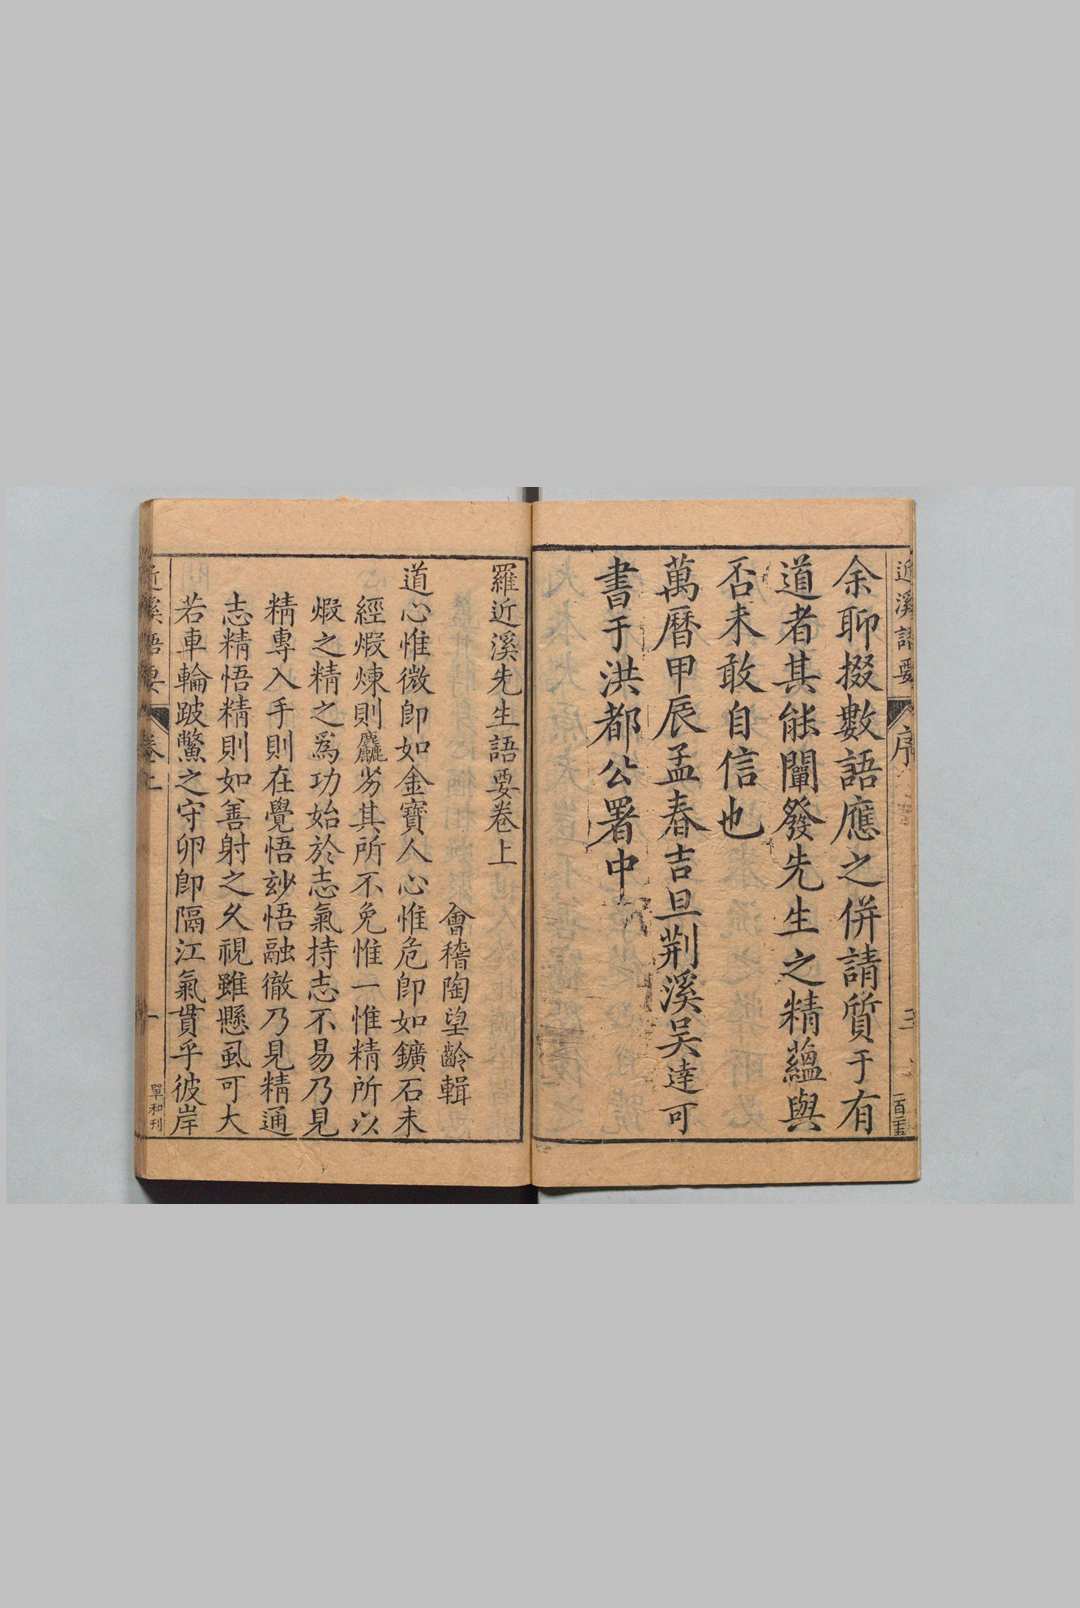 余聊掇數語應之併請質于有
道者其能闡發先生之精蘊與
否未敢自信也
萬曆甲辰孟春吉旦荆溪吳達可
書于洪都公署中
羅近溪先生語要卷上
會稽陶望齡輯
道心惟微卽如金寶人心惟危卽如鑛石未
經煅煉則麤劣其所不免惟一惟精所以
煅之精之爲功始於志氣持志不易乃見
精專入手則在覺悟玅悟融徹乃見精通
志精悟精則如善射之久視雖懸虱可大
若車輪跛鱉之守卵卽隔江氣貫乎彼岸
近溪語要
序
三
近溪語要
卷上
一
單和刊